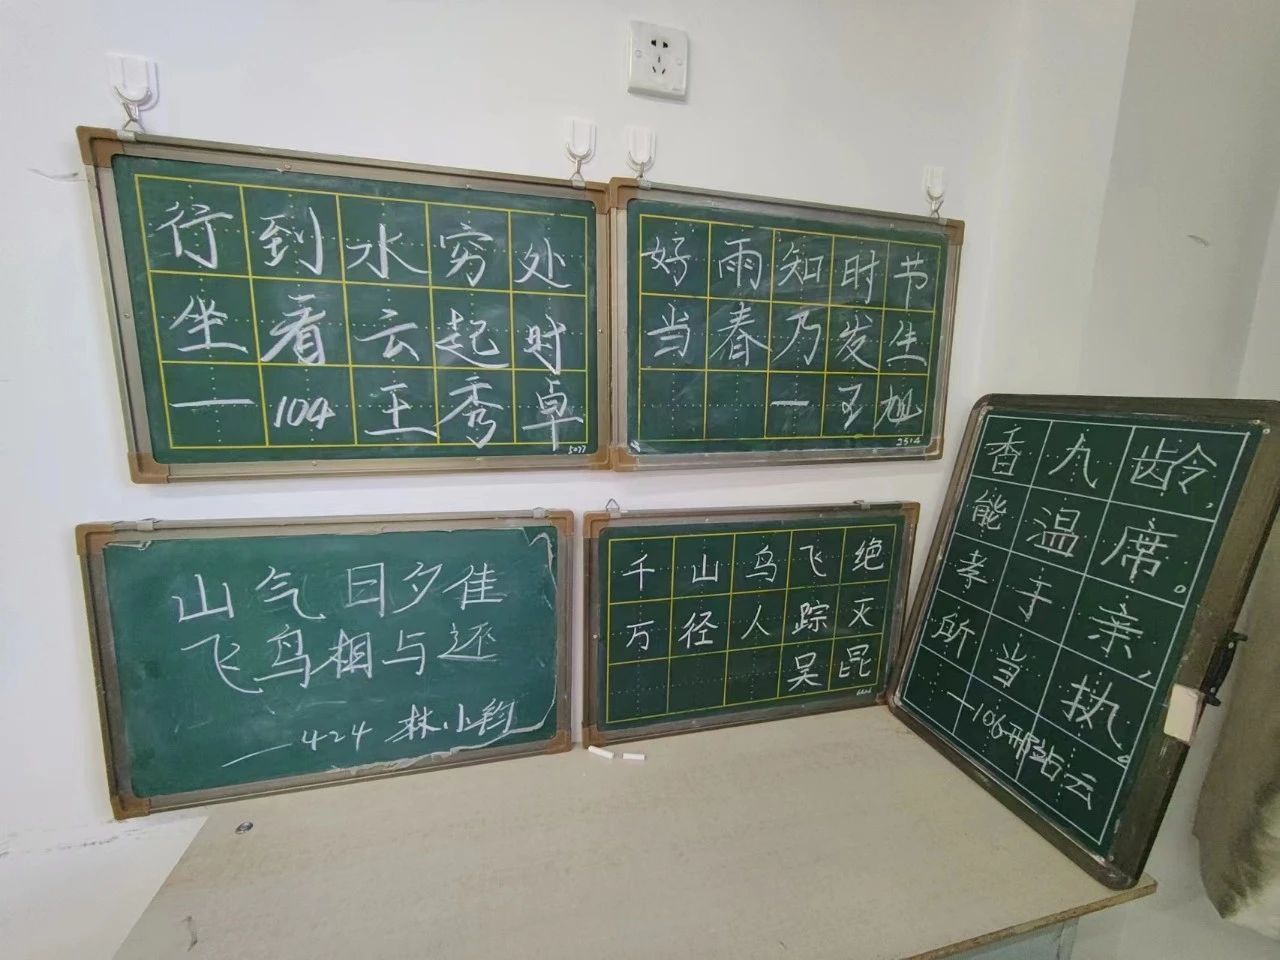 行到水穷处
坐看云起时
一104王秀卓
5077
好雨知时节
当春乃发生
一王旭
2514
山气日夕佳
飞鸟相与还
—424林小钧
千山鸟飞绝
万径人踪灭
吴昆
香九龄,
能温席。
孝于亲,
所当执。
—106邢站云